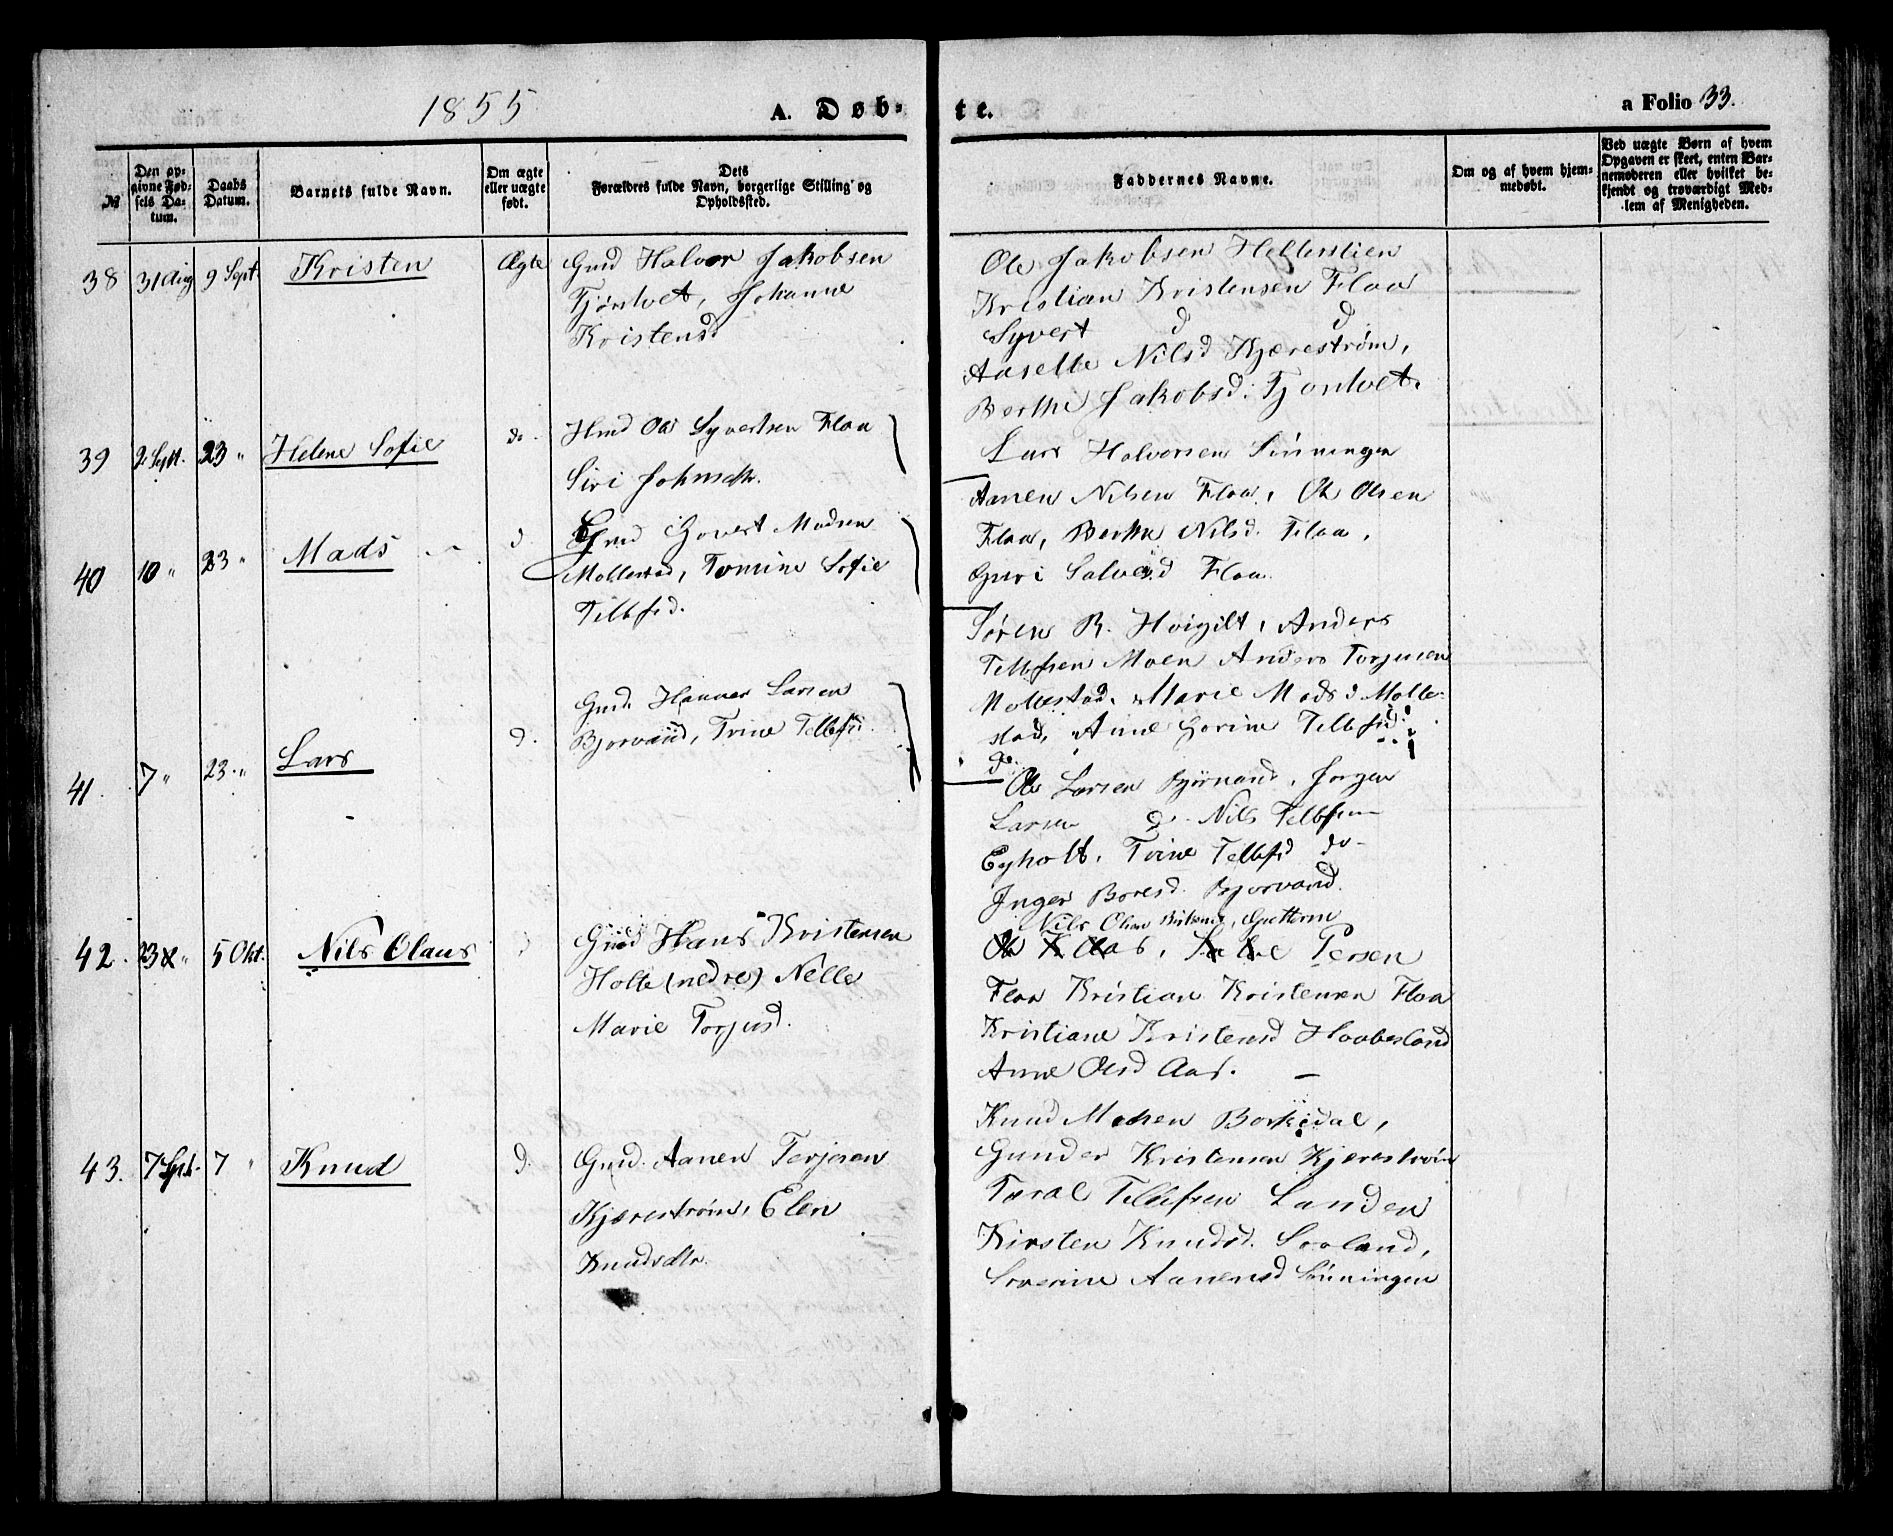 1855
A. Døb-
te.
a Folio 33.
№
Den op-
givne Fød-
sels Da-
tum.
Daabs
Datum.
Barnets fulde Navn.
Om ægte
eller uægte
født.
Dets
Forældres fulde Navn, borgerlige Stilling og
Opholdssted.
Faddernes Navne.
Om og af hvem hjem-
medøbt.
Ved uægte Børn af hvem
Opgaven er skeet, enten Bar-
nemoderen eller hvilket be-
kjendt og troværdigt Med-
lem af Menigheden.
38 31 Aug 9 Sept. Kristen Ægte Gmd Halvor Jakobsen
Tjöntvet, Johanne
Kristensd
Ole Jakobsen Hellerslien
Kristian Kristensen Flaa
Syvert d d
Aaselle Nilsd Kjærestrøm,
Berthe Jakobsd. Tjontvet.
39 2 Sept. 23 " Helene Sofie do. Hmd Ole Syvertsen Flaa
Siri Johnsdtr.
Lars Halvorsen Sinningen
Aanen Nilsen Flaa, Ole Olsen
Flaa, Berthe Nilsd. Flaa,
Guri Salvesd Flaa.
40 10 " 23 " Mads d. Gmd Govert Madsen
Mollestad, Tomine Sofie
Tellefsd.
Sören R. Hvigilt, Anders
Tellefsen Moen Anders Torjusen
Mollestad, Marie Mads d Molle-
stad, Anne Gorine Tellefsd.
do.
41. 7 " 23. " Lars d. Gmd. Hannes Larsen
Bjorvand, Trine Tellefsd.
Ole Larsen Bjørvand, Jorgen
Larsen d. Nils Tellefsen
Eyholt, Trine Tellefsd do-
Inger Boresd. Bjorvand.
42. 23 " 5 Okt. Nils Olaus d Gmd Hans Kristensen
Holte (nedre) Nelle
Marie Torjusd.
Nils Olsen
Ole Aas, Persen
Flaa Kristian Kristensen Flaa
Kristiane Kristensd Haabesland
Anne Olsd Aas. —
43. 7 Sept. 7 " Knud d. Gmd. Aanen Terjesen
Kjærestrøm, Elen
Knudsdtr.
Knud Madsen Borkedal,
Gunder Kristensen Kjærestrøm
Taral Tellefsen Landen
Kirsten Knudsd. Sooland,
Severine Aanensd Sinningen